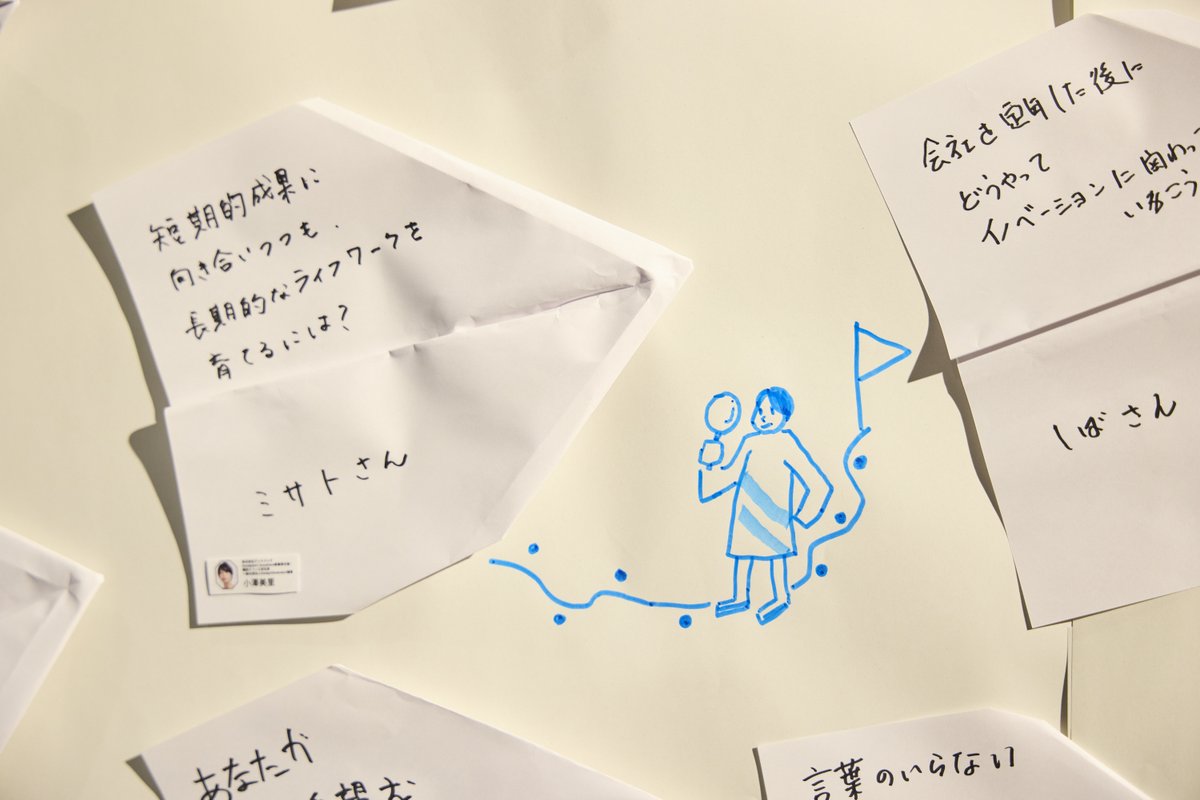 短期的成果に
向き合いつつも、
長期的なライフワークを
育てるには?
ミサトさん
小澤美里
会社を卒業した後に
どうやって
イノベーションに関わって
いようこう
しばさん
あなたが
望む
言葉のいらない